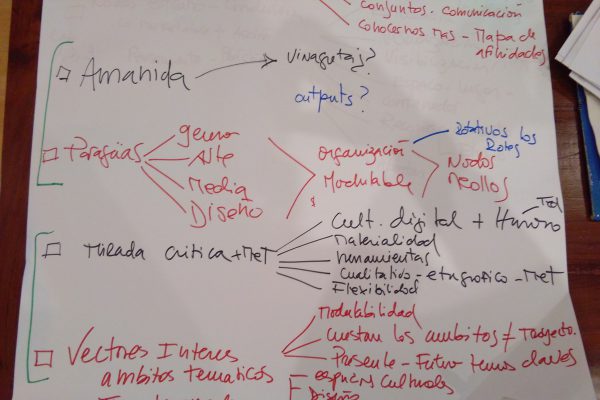 conjuntos. comunicación
conocernos mas - Mapa de
afinidades
Amanida
vinagretas?
outputs?
Paraguas
genero
Arte
Media
Diseño
organización
Modulable
Rotativos los
Roles
Nodos
Rollos
Mirada critica + Met
Cult. digital + Humano
Materialidad
herramientas
cualitativo - etnografico - Met
Flexibilidad
Vectores Interes
ambitos tematicos
Modulabilidad
los ambitos ≠
Presente - Futuro temas claves
espacios culturales
Diseño